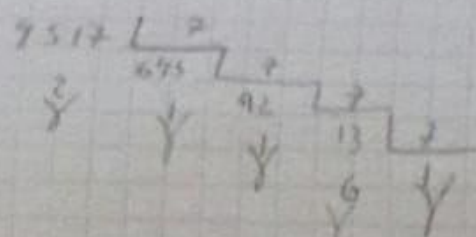 4517 7
645 7 7
2 1 92 13 7
1 6 1